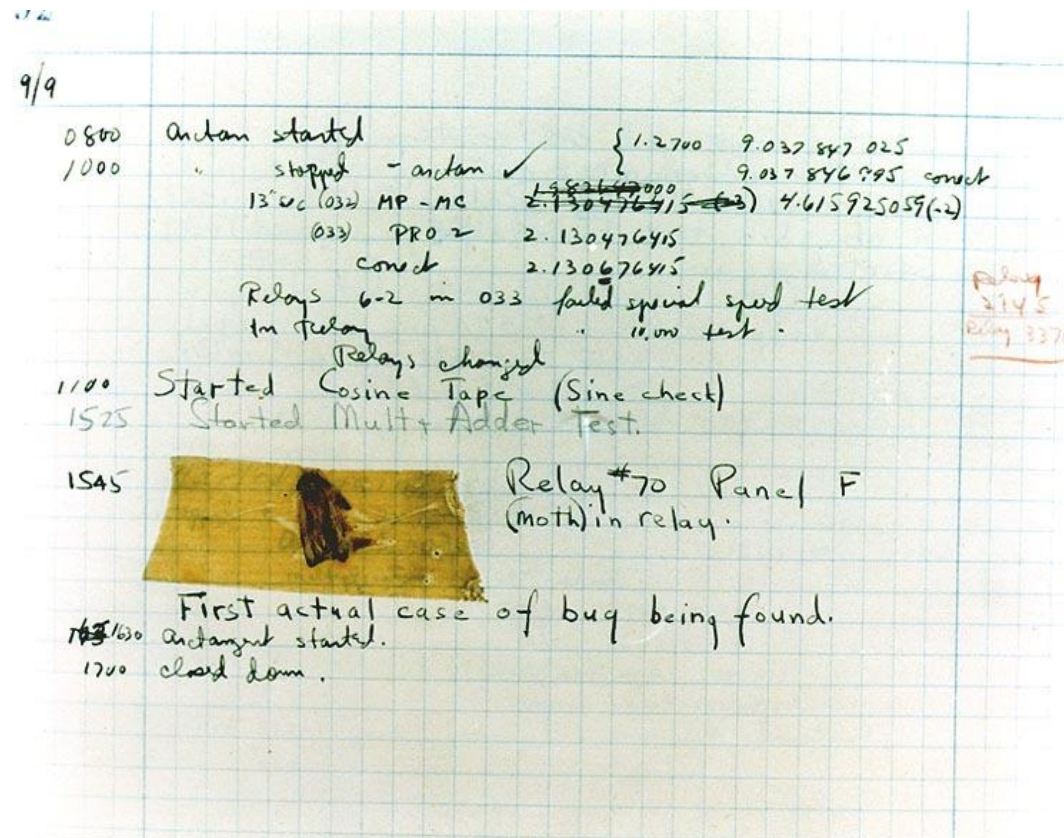 9/9
0800 antan started { 1.2700 9.037 847 025
1000 " stopped - antan ✓ 9.037 846 995 conect
13" uc (032) MP - MC 1.982647000 2.130476415 (-3) 4.615925059(-2)
(033) PRO 2 2.130476415
conect 2.130676415
Relays 6-2 in 033 failed special speed test
In Relay " 10,000 test .
Relays changed
1100 Started Cosine Tape (Sine check)
1525 Started Mult + Adder Test.
1545 Relay #70 Panel F
(moth) in relay.
First actual case of bug being found.
1630 antangent started.
1700 closed down .
Relay
2145
Relay 337